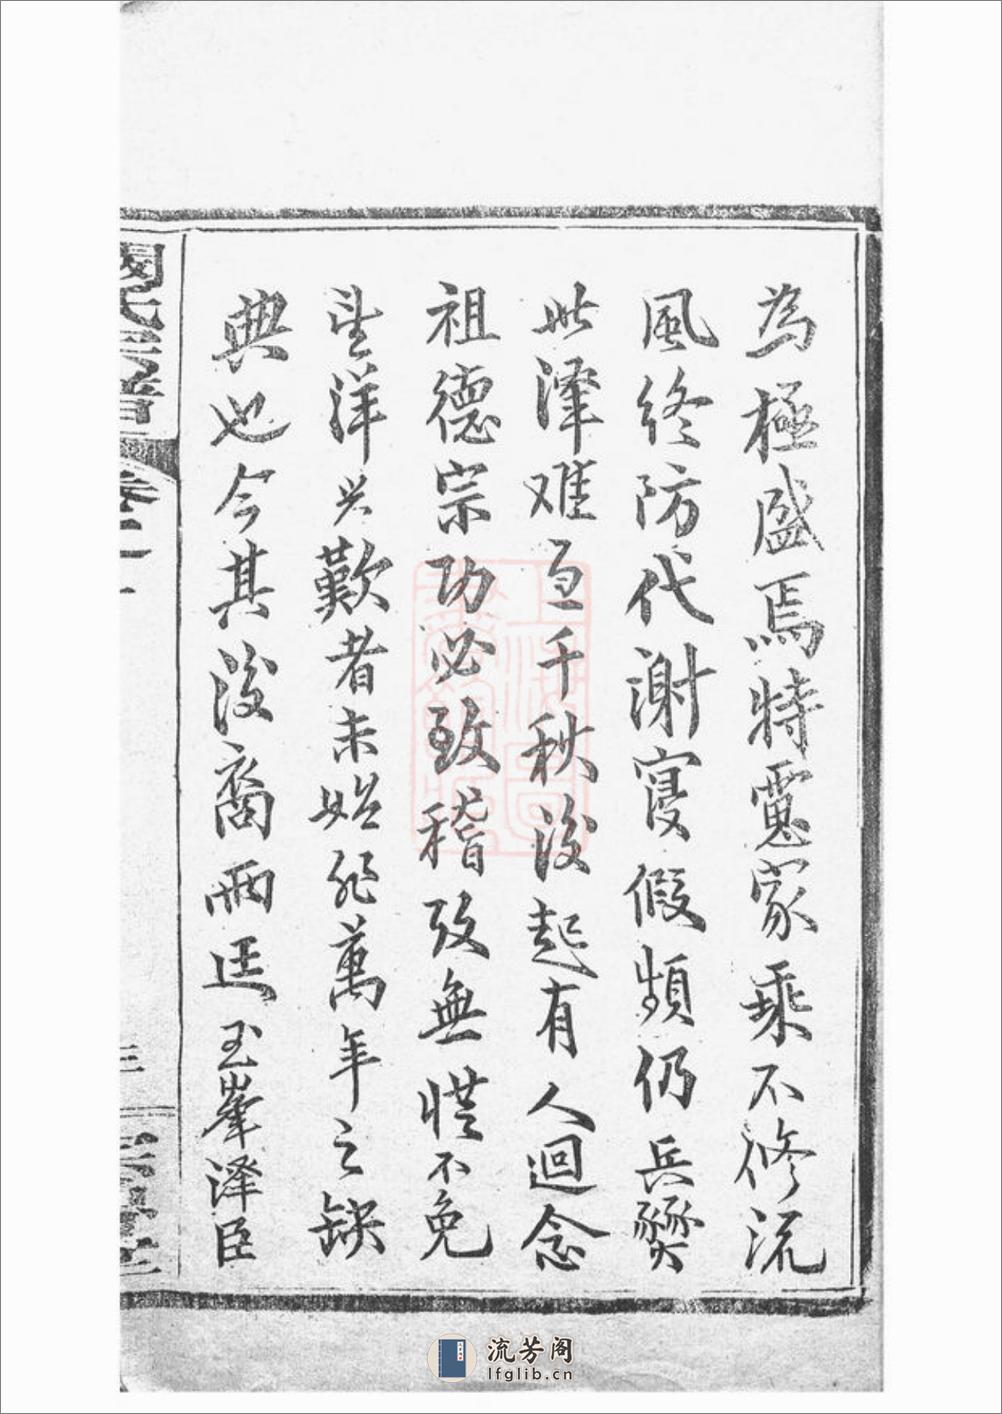 為極盛焉特蒐家乘不修流
風終防代謝寖假頻仍兵燹
世澤难亘千秋後起有人迴念
祖德宗功必致稽攷無㡳不免
望洋兴歎者未始非萬年之缺
典也今其後裔雨廷玉峯澤臣
氏宗譜
卷之一
三
流芳阁
lfglib.cn